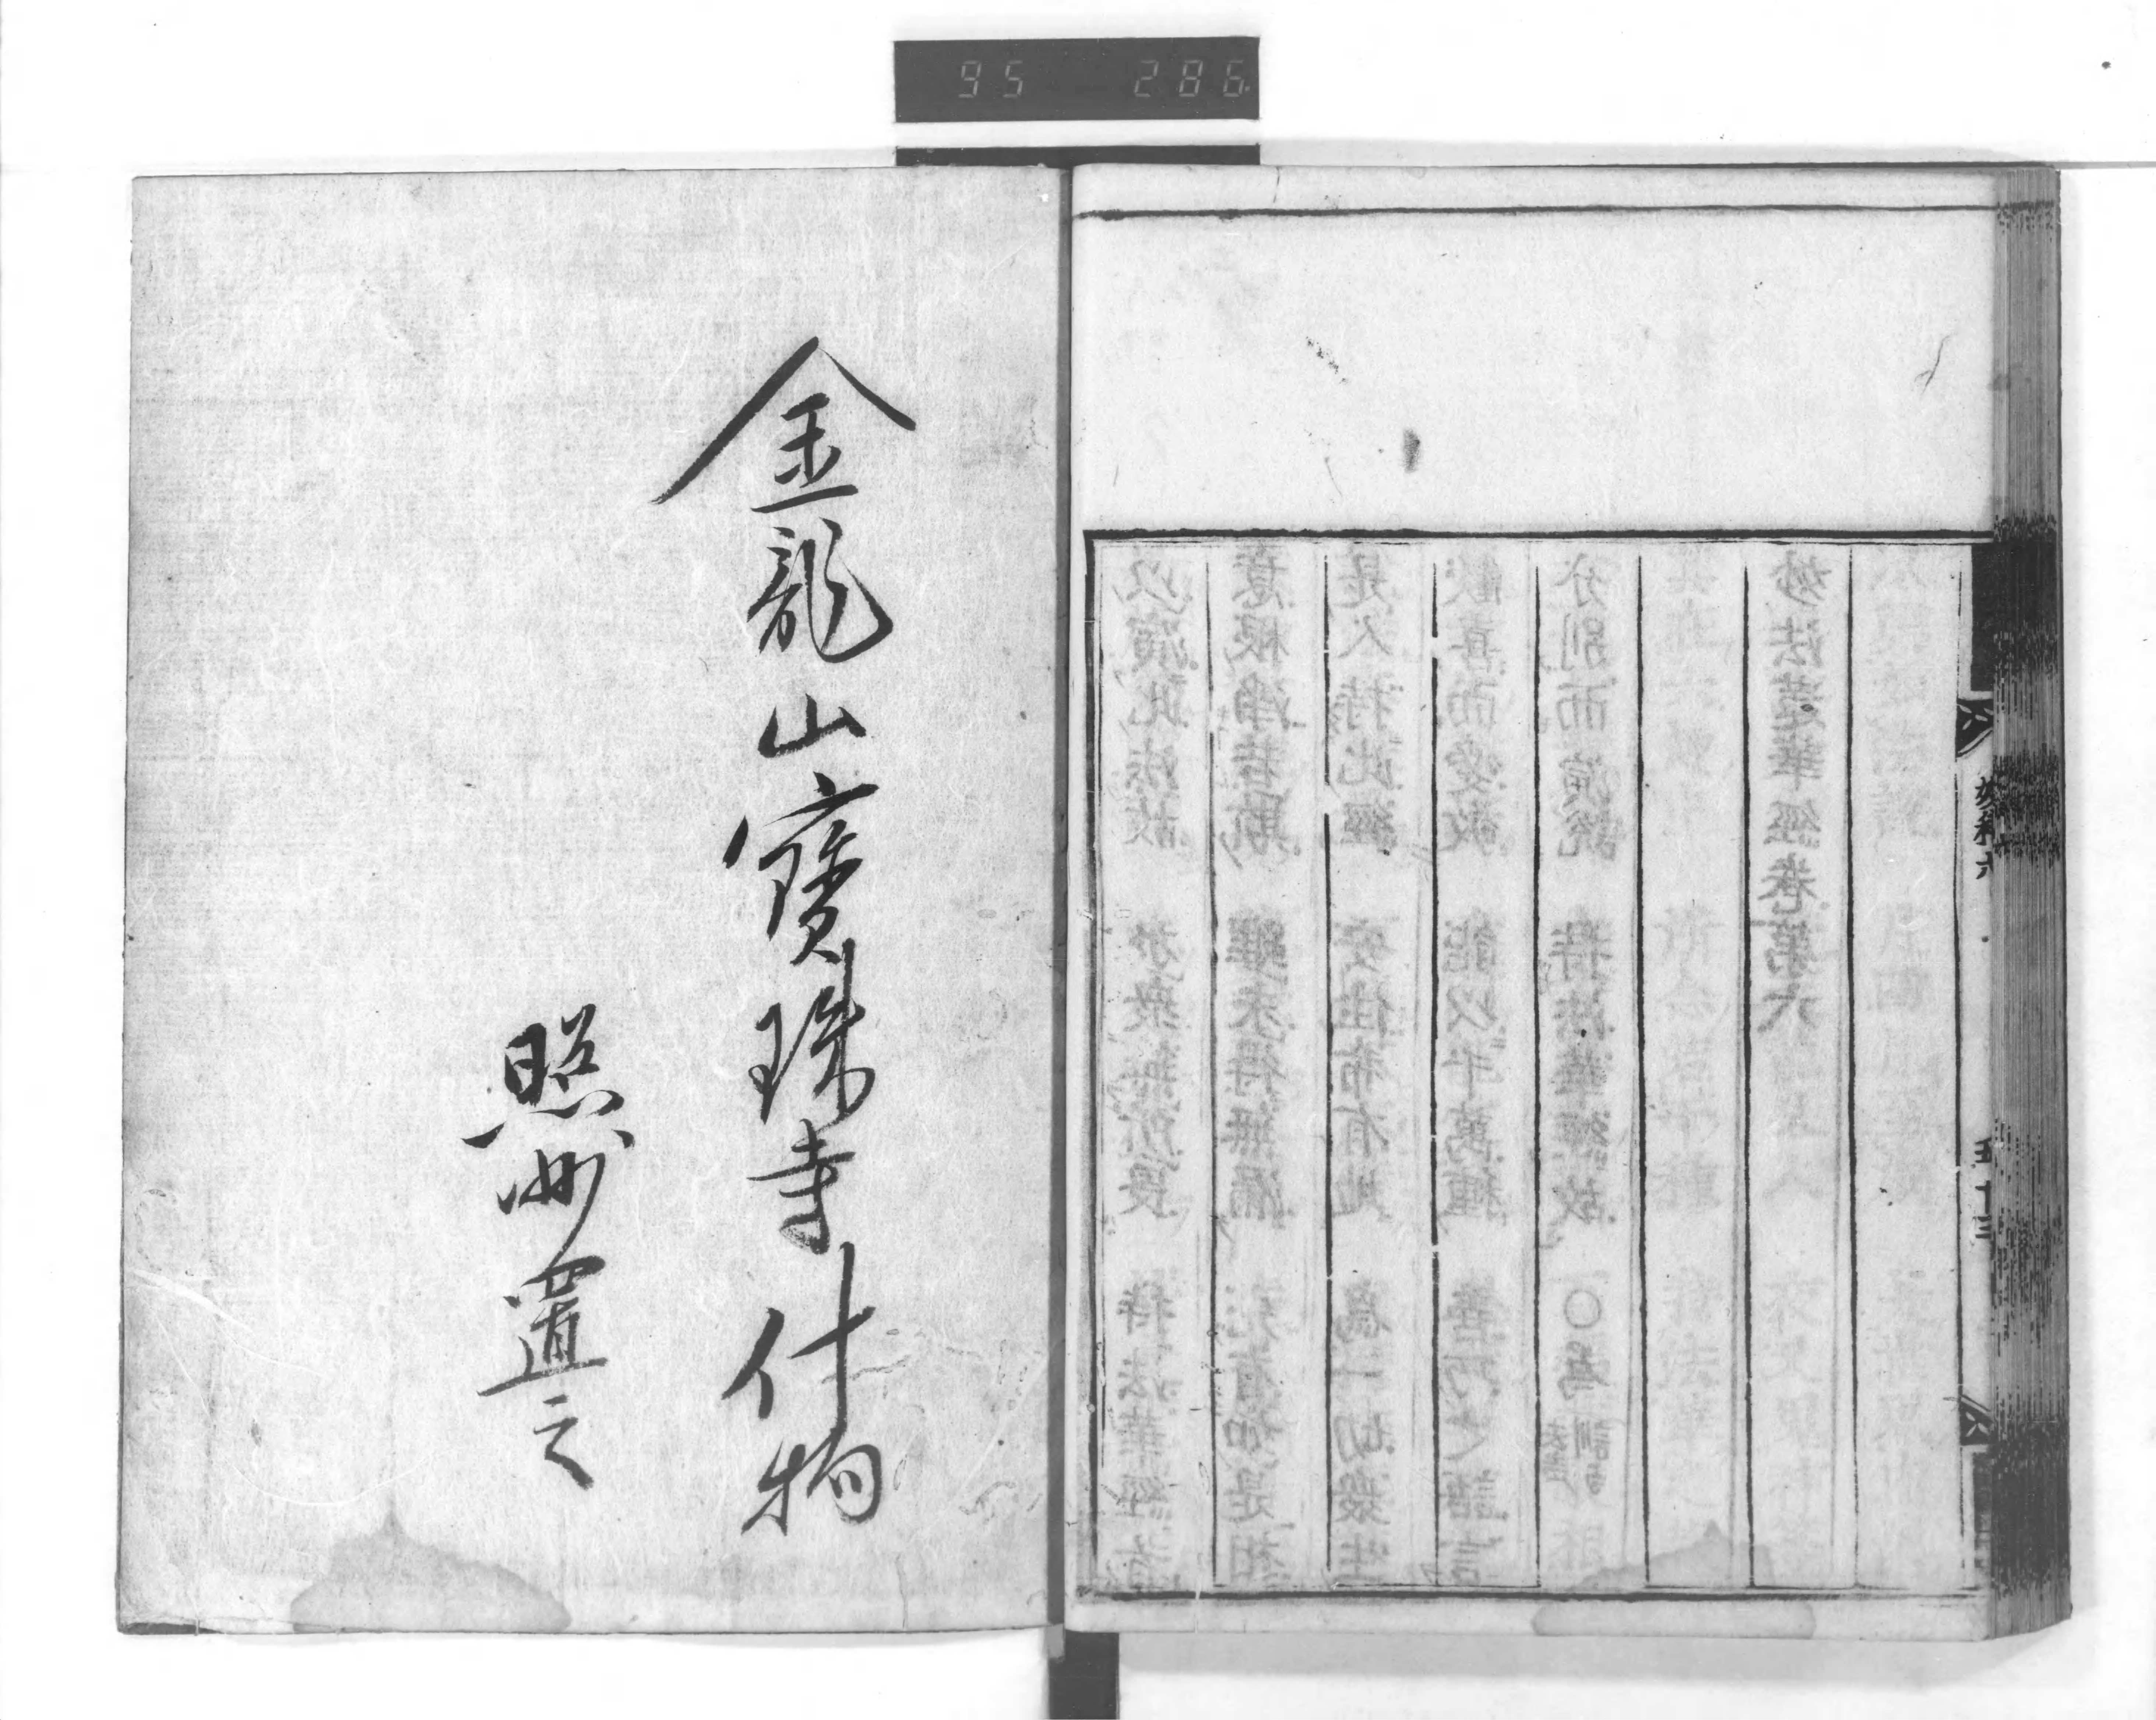 95 286
妙經六
五十三
妙法蓮華經卷第六
分別而演說 持法華經故
歡喜而愛敬 能以千萬種 善巧之語言
是人持此經 安住希有地 爲一切衆生
意根淨若斯 雖未得無漏 先有如是相
以演此法故 於衆無所畏 持法華經者
金龍山寶珠寺什物
照州置之